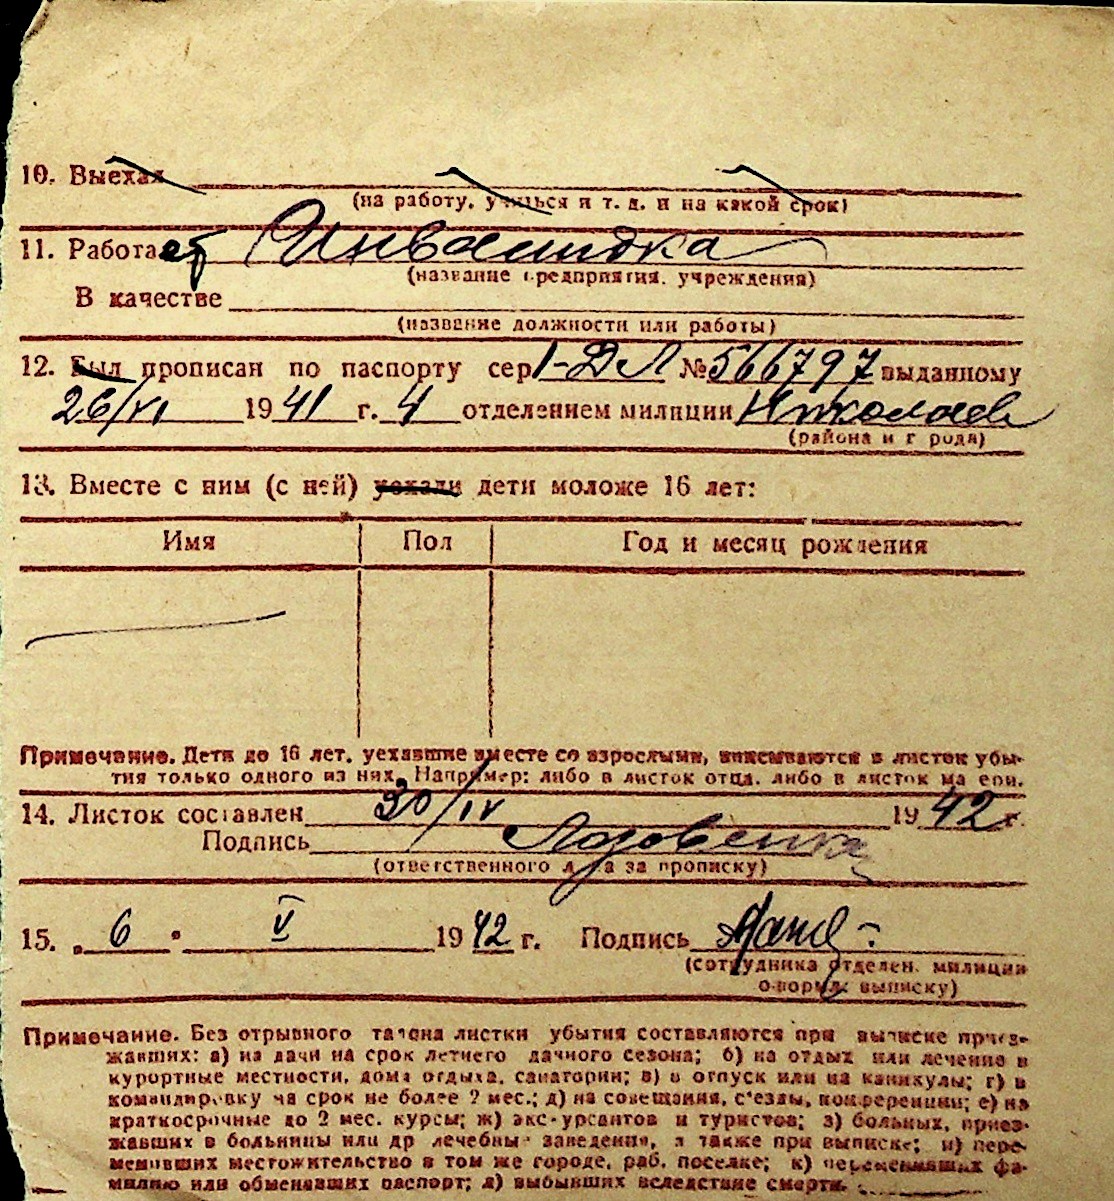 10. Выехал
(на работу, учиться и т. д. и на какой срок)
11. Работает Инвалидка
(название предприятия, учреждения)
В качестве
(название должности или работы)
12. Был прописан по паспорту сер 1-ДЛ № 566797 выданному
26/VI 1941 г. 4 отделением милиции Николаев
(района и города)
13. Вместе с ним (с ней) уехали дети моложе 16 лет:
Имя Пол Год и месяц рождения
Примечание. Дети до 16 лет, уехавшие вместе со взрослыми, вписываются в листок убы-
тия только одного из них. Например: либо в листок отца, либо в листок матери.
14. Листок составлен 30/IV 1942 г.
Подпись
(ответственного лица за прописку)
15. „ 6 " V 1942 г. Подпись
(сотрудника отделен. милиции
оформл. выписку)
Примечание. Без отрывного талона листки убытия составляются при выписке приез-
жавших: а) на дачи на срок летнего дачного сезона; б) на отдых или лечение в
курортные местности, дома отдыха, санатории; в) в отпуск или на каникулы; г) в
командировку на срок не более 2 мес.; д) на совещания, с'езды, конференции; е) на
краткосрочные до 2 мес. курсы; ж) экскурсантов и туристов; з) больных, приез-
жавших в больницы или др лечебные заведения, а также при выписке; и) пере-
менивших местожительство в том же городе, раб. поселке; к) переменивших фа-
милию или обменявших паспорт; л) выбывших вследствие смерти.